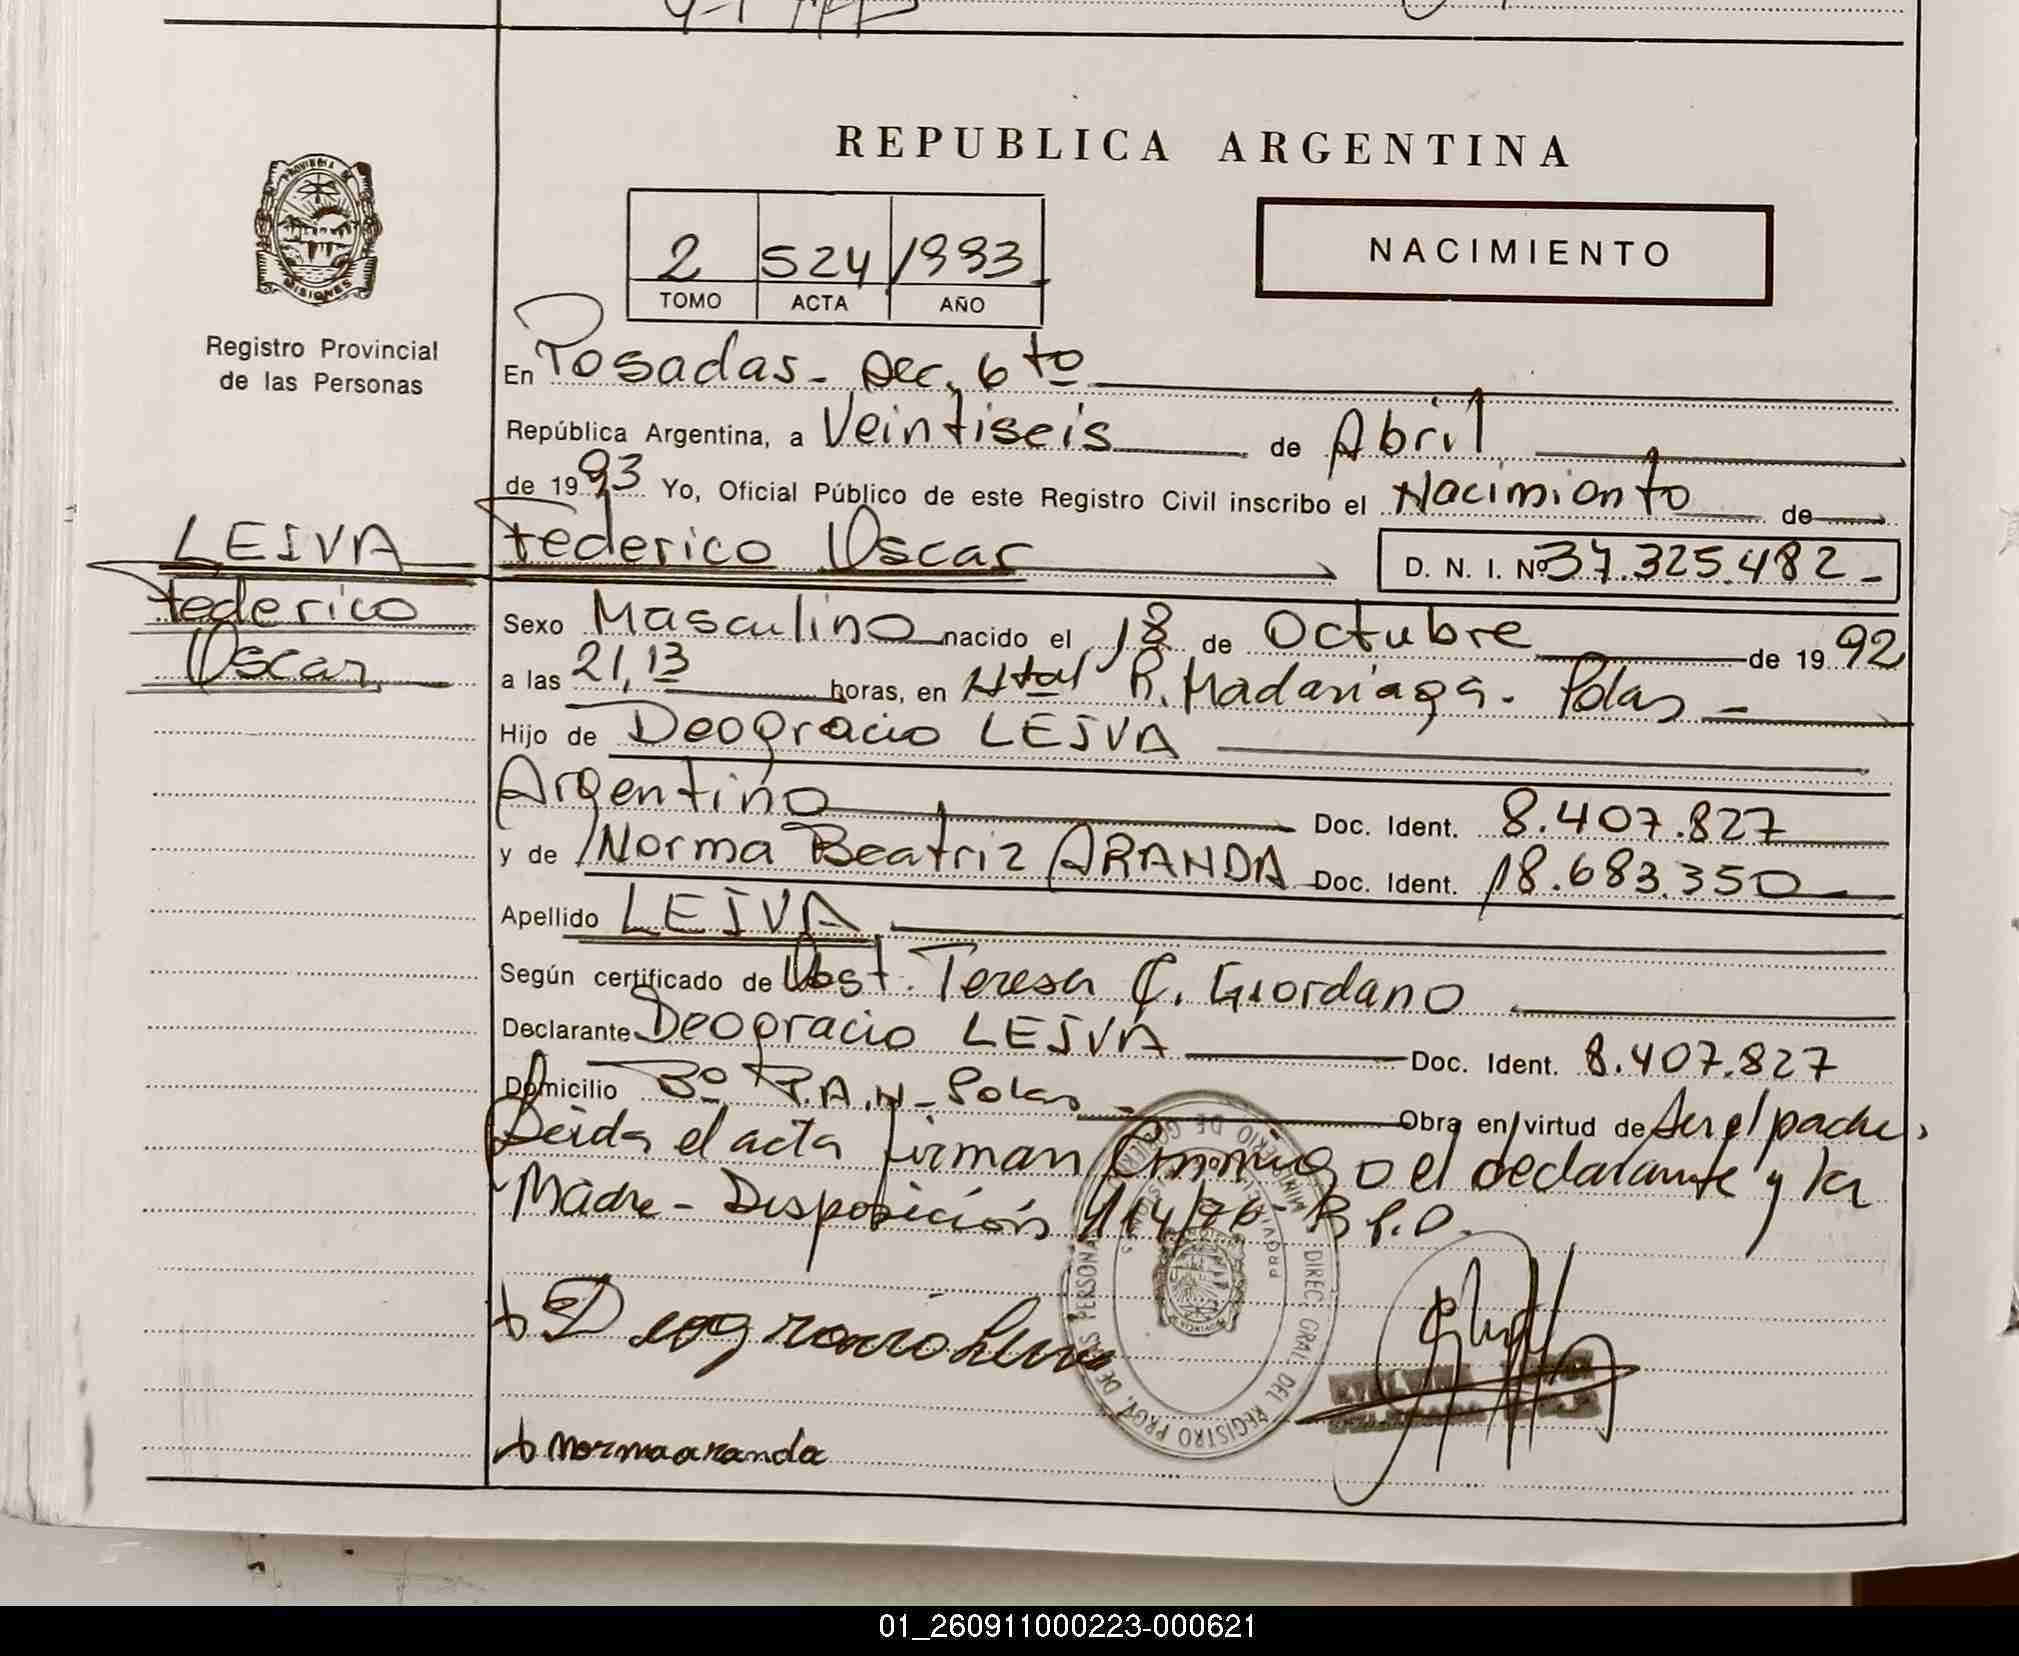 REPUBLICA ARGENTINA
PROVINCIA DE
MISIONES
Registro Provincial
de las Personas
NACIMIENTO
2 524 1993
TOMO ACTA AÑO
En Posadas - Sec. 6to
República Argentina, a Veintiseis de Abril
de 1993 Yo, Oficial Público de este Registro Civil inscribo el Nacimiento de
LEIVA
Federico
Oscar
Federico Oscar D. N. I. Nº 37.325.482-
Sexo Masculino nacido el 18 de Octubre de 1992
a las 21,13 horas, en Htal R. Madariaga - Pdas -
Hijo de Deogracio LEIVA
Argentino Doc. Ident. 8.407.827
y de Norma Beatriz ARANDA Doc. Ident. 18.683.350
Apellido LEIVA
Según certificado de Obst. Teresa C. Giordano
Declarante Deogracio LEIVA Doc. Ident. 8.407.827
Domicilio Bº P.A.N - Pdas - Obra en virtud de ser el padre.
Leida el acta firman Conmigo el declarante y la
Madre - Disposición
Deogracio Leiva
Norma aranda
DIREC. GRAL. DEL REGISTRO PROV. DE LAS PERSONAS
MINISTERIO DE GOBIERNO
01_260911000223-000621